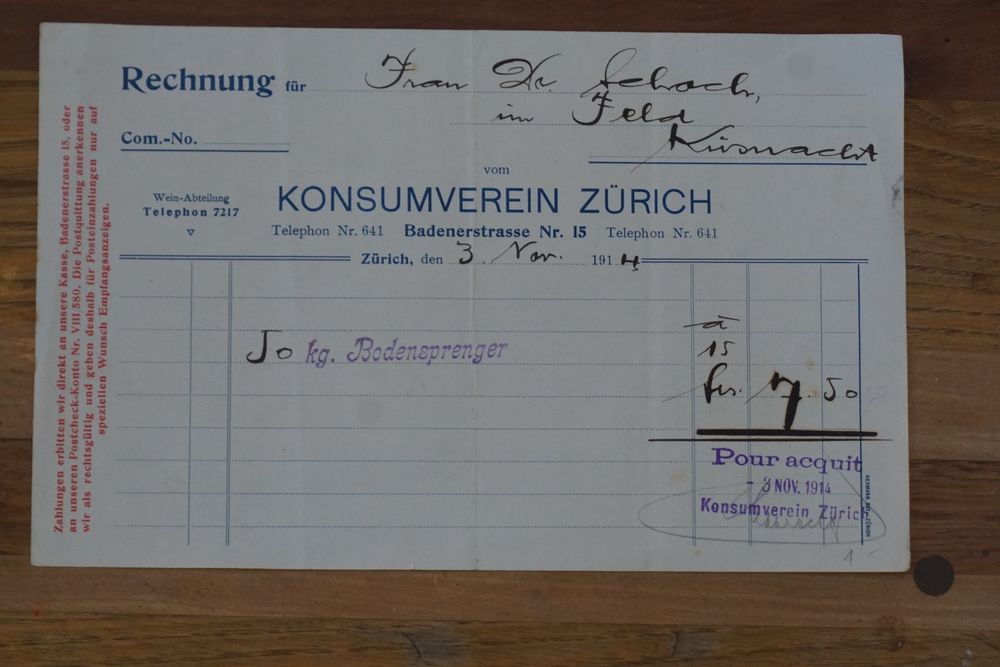 Rechnung für Frau Dr. Schoch,
im Feld
Küsnacht
Com.-No.
vom
Wein-Abteilung
Telephon 7217
KONSUMVEREIN ZÜRICH
Telephon Nr. 641 Badenerstrasse Nr. 15 Telephon Nr. 641
Zürich, den 3. Nov. 1914
à
50 kg. Bodensprenger 15
frs. 7.50
Pour acquit
- 3 NOV. 1914
Konsumverein Zürich
Zahlungen erbitten wir direkt an unsere Kasse, Badenerstrasse 15, oder
an unseren Postcheck-Konto Nr. VIII/580. Die Postquittung anerkennen
wir als rechtsgültig und geben deshalb für Posteinzahlungen nur auf
speziellen Wunsch Empfangsanzeigen.